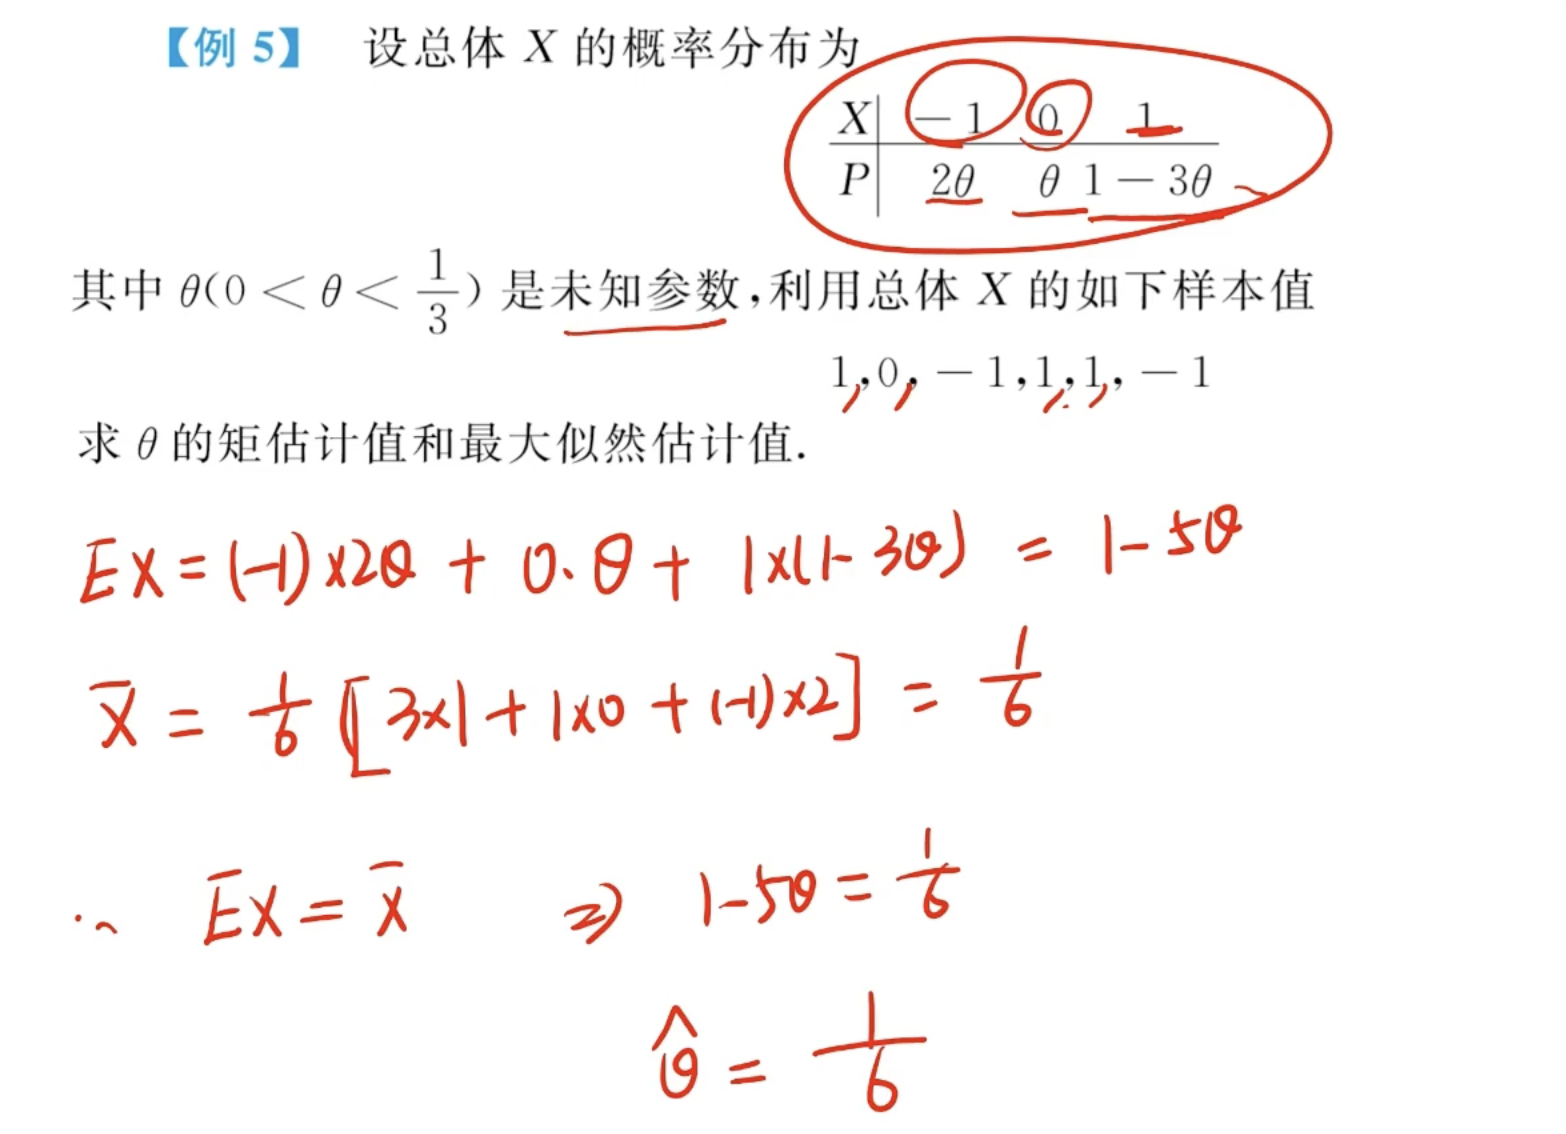 【例 5】 设总体 X 的概率分布为
X -1 0 1
P 2θ θ 1-3θ
其中 θ(0<θ<1/3) 是未知参数,利用总体 X 的如下样本值
1,0,-1,1,1,-1
求 θ 的矩估计值和最大似然估计值.
EX=(-1)×2θ + 0·θ + 1×(1-3θ) = 1-5θ
X̄ = 1/6 [3×1+1×0+(-1)×2] = 1/6
∴ EX=X̄ ⇒ 1-5θ=1/6
θ̂ = 1/6